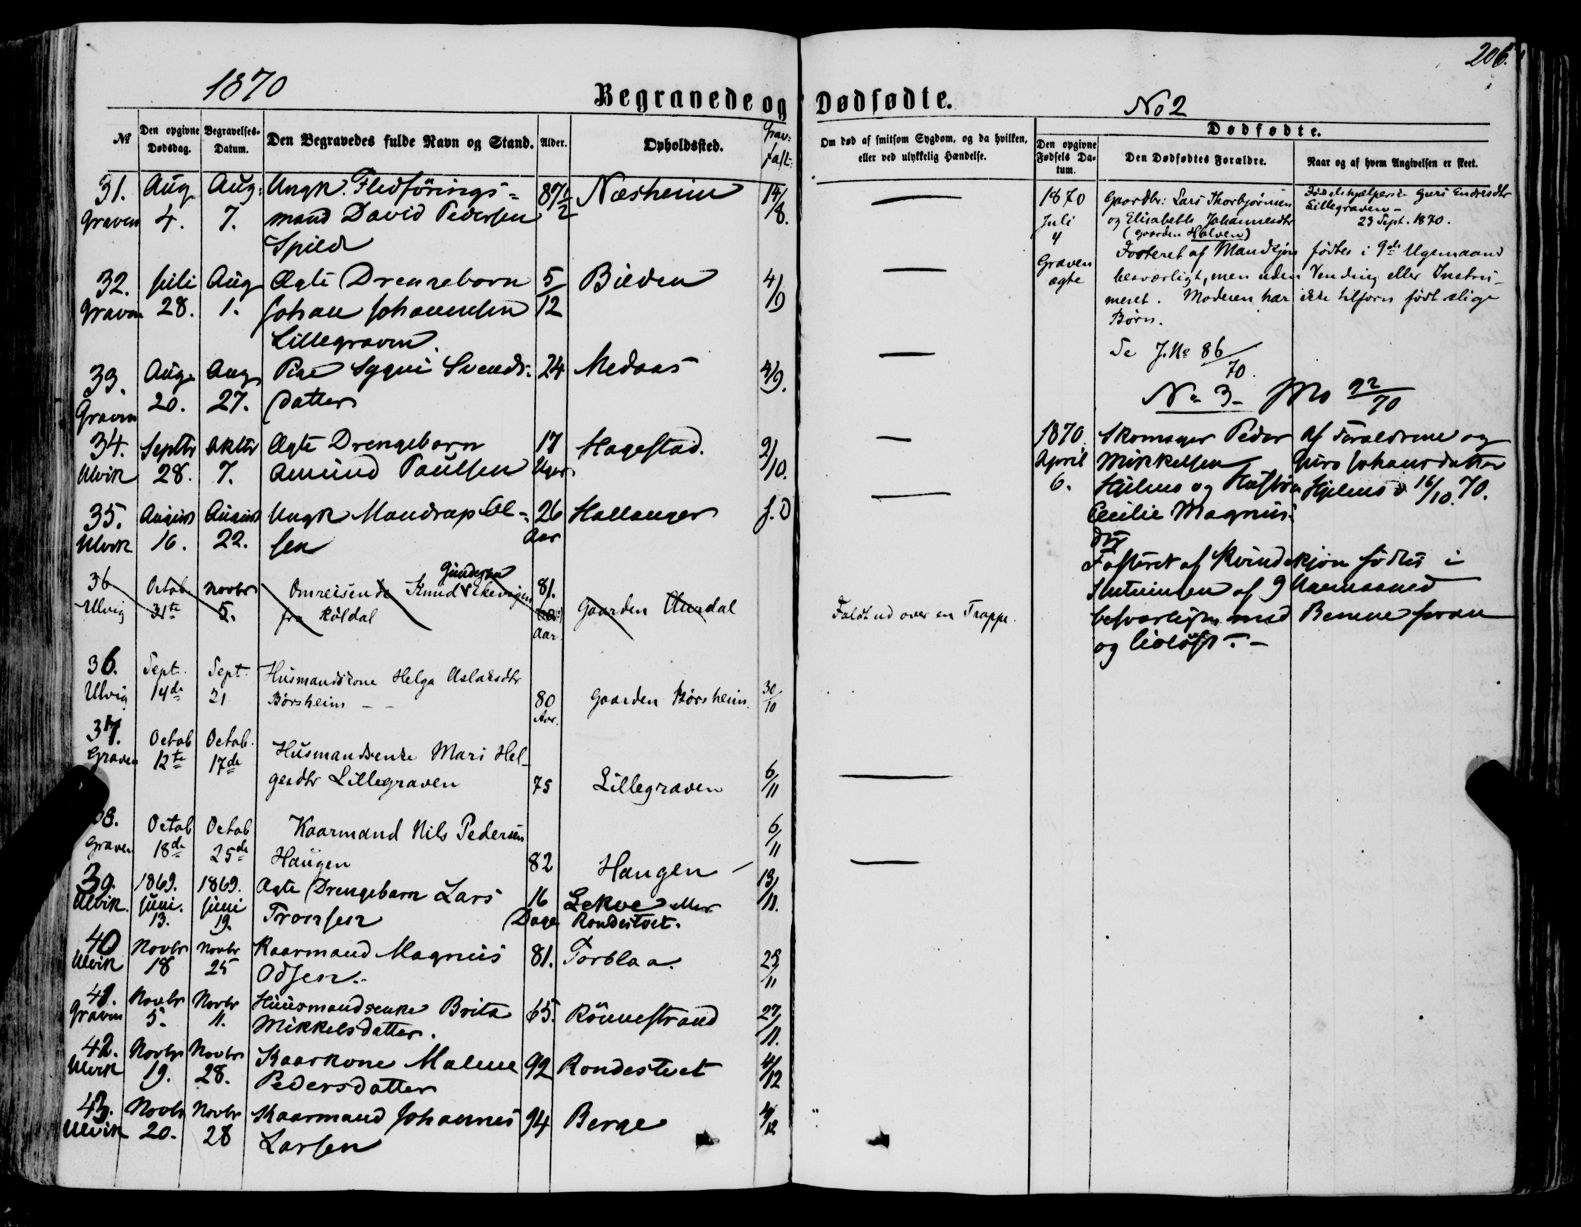 1870
206.
Begravede og Dødfødte.
No 2
№
Den opgivne Dødsdag.
Begravelses-Datum.
Den Begravedes fulde Navn og Stand.
Alder.
Opholdssted.
Om død af smitsom Sygdom, og da hvilken, eller ved ulykkelig Hændelse.
Dødfødte.
Den opgivne Fødsels Datum.
Den Dødfødtes Forældre.
Naar og af hvem Angivelsen er skeet.
31. Aug Aug: Ungk. Flidførings- 87 1/2 Næsheim 14/8.
Graven 4. 7. mand David Pedersen
Spilde
32. Juli Aug Ægte Drengebarn 5/12 Bilden 4/9
Graven 28. 1. Johan Johannesen
Lillegraven.
33. Aug. Aug. Pige Sygni Svends- 24 Medaas 4/9.
Graven 20. 27. datter
34. Septbr Oktbr Ægte Drengebarn 17 Hagestad. 2/10.
Ulvik 28. 7. Amund Paulsen Uger
35. August August Ungk Mandrup Ol- 26 Hallanger f. D
Ulvik 16. 22. sen Aar
Gundersen
36 Octob Novbr Omreisende Knud Ekevigen 81.
Ulvig 31te 5. fra Röldal Aar Gaarden Aurdal Faldt ud over en Trappe.
36. Sept. Sept. Husmandskone Helga Aslaksdtr
Ulvig 14de 21 Børsheim 80 Aar. Gaarden Børsheim. 30/10
37. Octob Octob. Husmandsenke Mari Hel-
Graven 12te 17de gesdtr Lillegraven 75 Lillegraven 6/11
38. Octob Octob Kaarmand Nils Pedersen 6/11
Graven 18de 25de Haugen 82 Haugen
39. 1869. 1869. Ægte Drengebarn Lars 16 Lekve eller 13/11.
Ulvik Juni. Juni Tromsen Dage Rondestvet.
13. 19.
40 Novbr Novbr Kaarmand Magnus 81. Torblaa. 28/11
Ulvik 18 25 Odsen.
41. Novbr Novbr Huusmandsenke Brita 65. Rönnestrand 27/11.
Graven 5. 11. Mikkelsdatter.
42. Novbr Novbr Kaarkone Malene 92 Rondestvet 4/12
Ulvik 19. 28. Pedersdatter
43. Novbr Novbr Kaarmand Johannes 94 Berge 4/12
Ulvik 20. 28 Larsen
1870 Gaardbr: Lars Thorbjørnsen
Juli og Elisabeth Johannesdtr
4 (Gaarden Halven)
Graven Fosteret af Mandkjøn fødtes i 9de Ugemaaned
ægte besværligt, men uden Vending eller Instru-
meret. Moderen har ikke tilforn født slige
Børn.
Se J.No 86/70.
Guri Endresdtr
Lillegraven -
23 Sept. 1870.
No 3 - 92/70
1870. Skomager Peder Af Forældrene og
April Mikkelsen Guro Johansdatter
6. Hjelmo og Hustru Hjelmo d 16/10. 70.
Cecilie Magnus-
dtr
Fosteret af Kvindekjøn fødtes i
Slutningen af 9 Ugemaaned
besværligen med Benene foran
og livløst. -